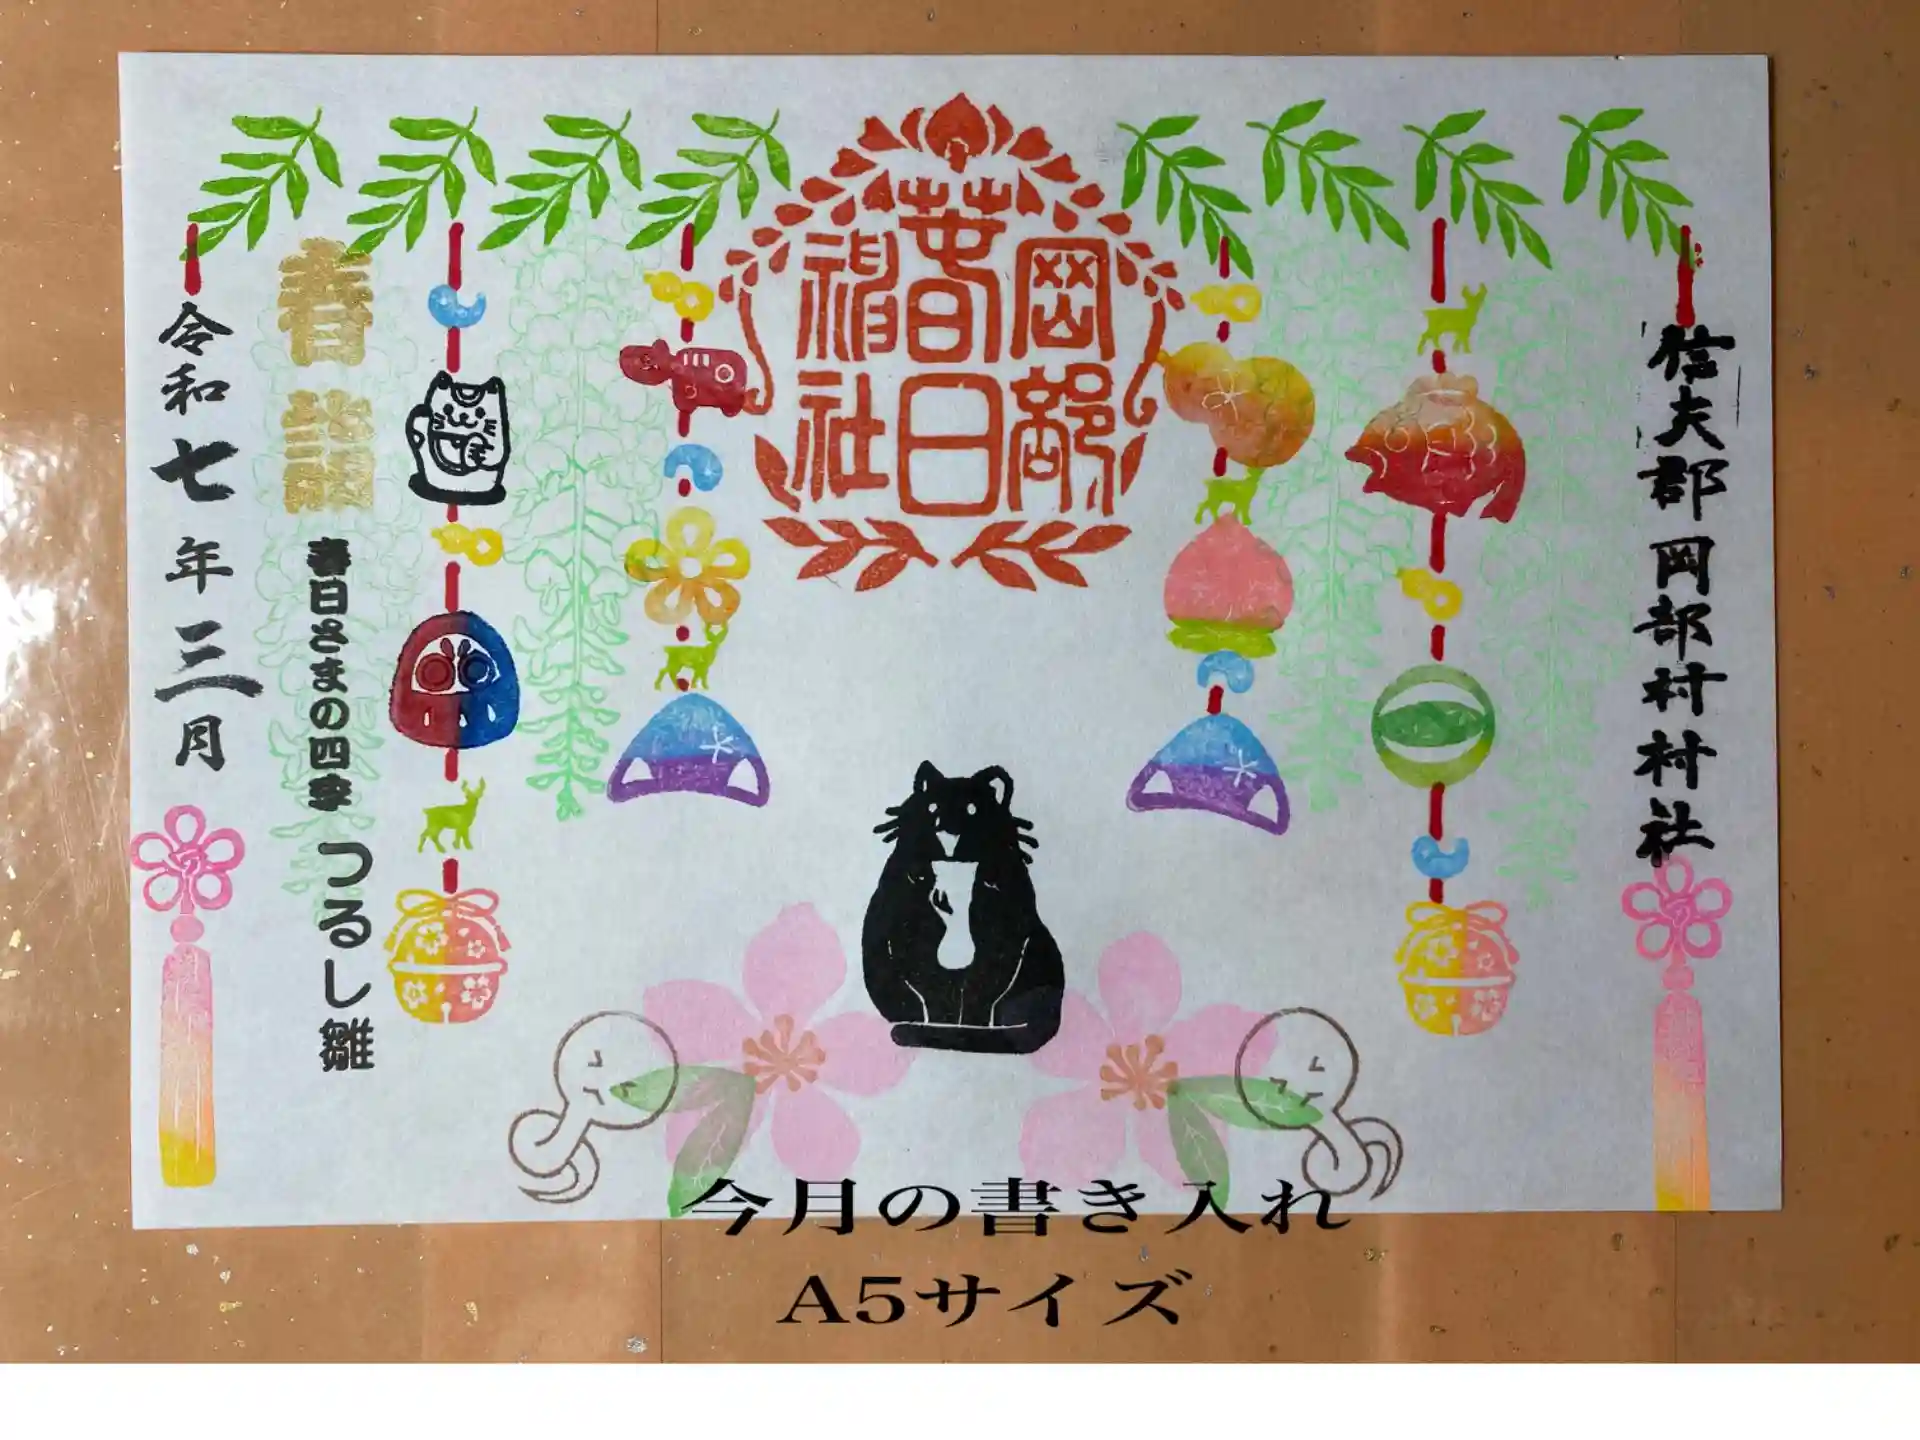 信夫郡岡部村村社
岡部
春日
神社
春詣
春日さまの四季
つるし雛
令和七年三月
今月の書き入れ
A5サイズ